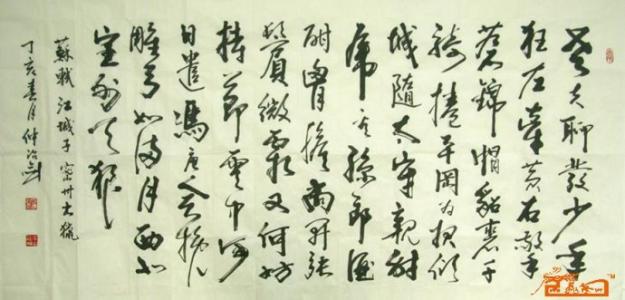 老夫聊發少年
狂左牽黄右擎
蒼錦帽貂裘千
騎捲平岡為報傾
城隨太守親射
虎看孫郎酒
酣胸膽尚開張
鬢微霜又何妨
持節雲中何
日遣馮唐會挽
雕弓如滿月西北
望射天狼
蘇軾 江城子 密州大獵
丁亥春月仲